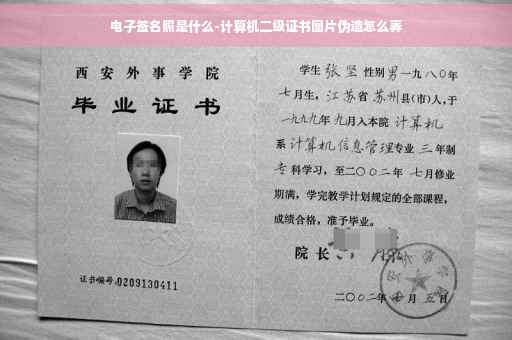 电子签名照是什么-计算机二级证书图片伪造怎么弄
西安外事学院
毕业证书
证书编号:0209130411
学生张坚性别男一九八〇年
七月生,江苏省苏州县(市)人,于
一九九九年九月入本院计算机
系计算机信息管理专业三年制
专科学习,至二〇〇二年七月修业
期满,学完教学计划规定的全部课程,
成绩合格,准予毕业。
院长
二〇〇二年 月五日